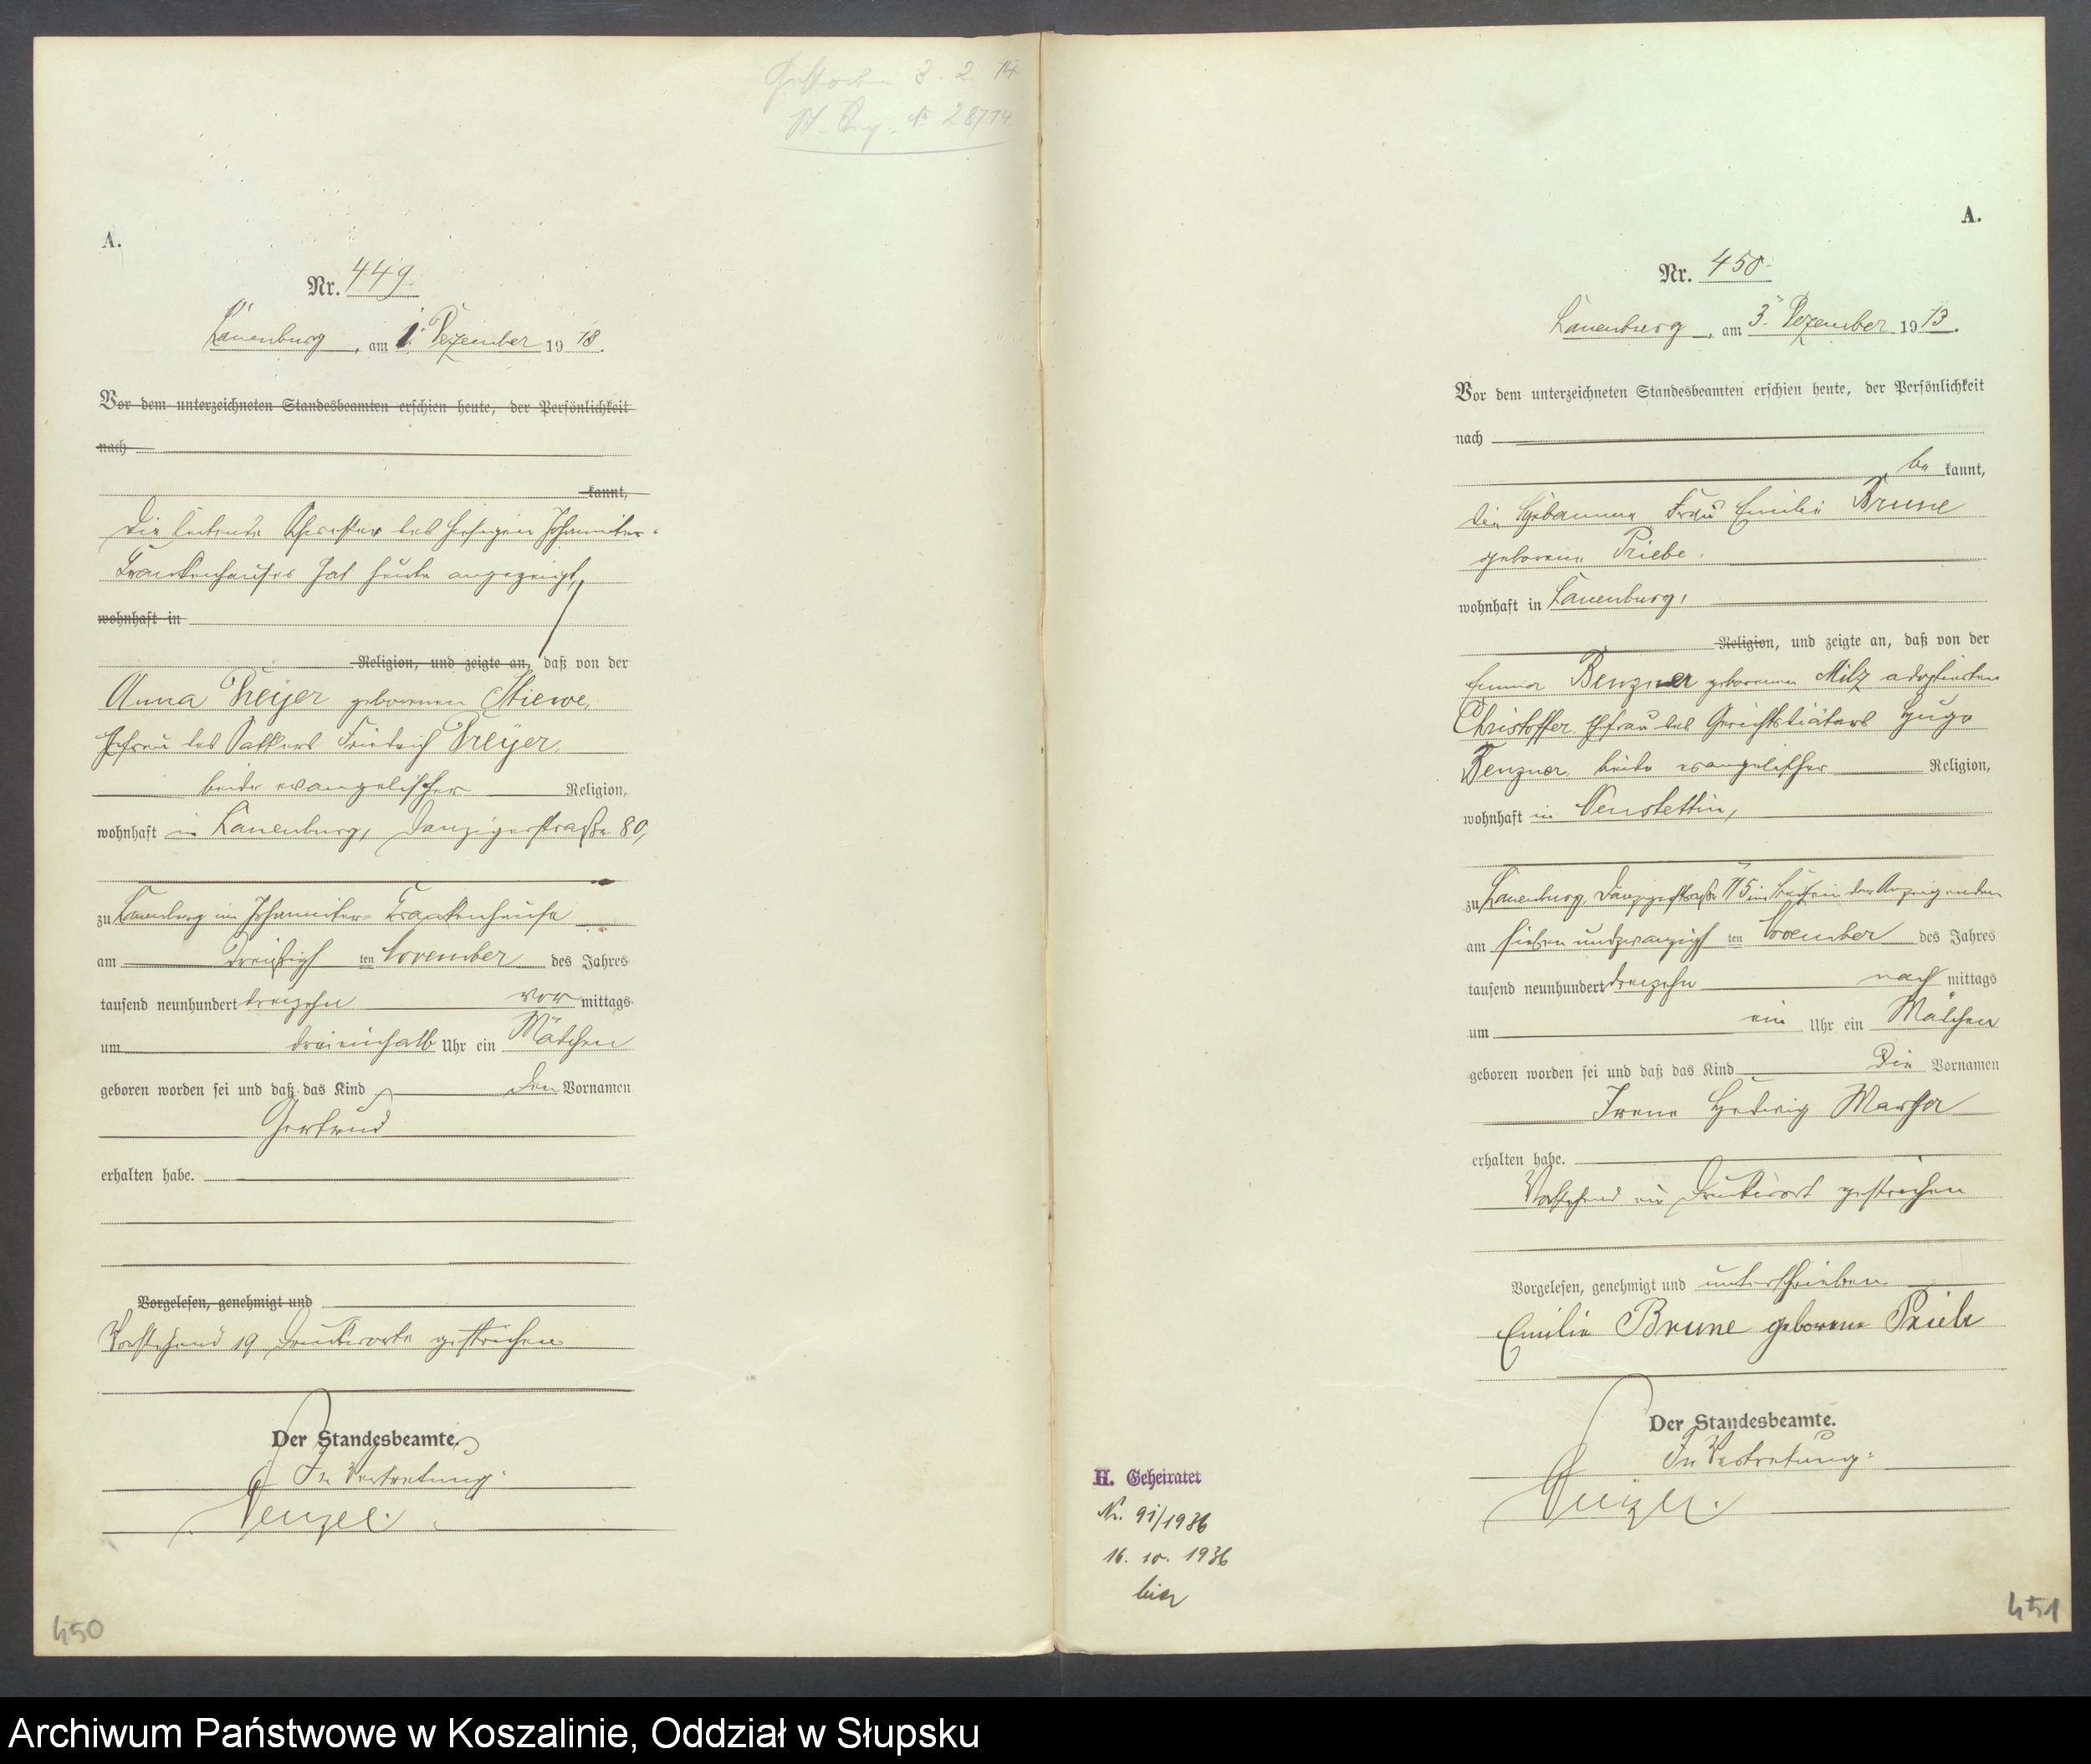 Gestorben 3. 2. 14
St. Reg. № 28/14
A.
Nr. 449.
Lauenburg, am 1. Dezember 1913.
Vor dem unterzeichneten Standesbeamten erschien heute, der Persönlichkeit
nach
kannt,
Die leitende Schwester des hiesigen Johanniter-
Krankenhauses hat heute angezeigt,
wohnhaft in
Religion, und zeigte an, daß von der
Anna Preijer geborenen Stiewe,
Ehefrau des Friedrich Preijer,
beide evangelischer Religion,
wohnhaft in Lauenburg, Danzigerstraße 80,
zu Lauenburg im Johanniter-Krankenhause
am dreißigsten November des Jahres
tausend neunhundert dreizehn vormittags
um dreieinhalb Uhr ein Mädchen
geboren worden sei und daß das Kind den Vornamen
Gertrud
erhalten habe.
Vorgelesen, genehmigt und
Vorstehend 19 Druckworte gestrichen
Der Standesbeamte.
In Vertretung:
Venzel.
450
A.
Nr. 450.
Lauenburg, am 3. Dezember 1913.
Vor dem unterzeichneten Standesbeamten erschien heute, der Persönlichkeit
nach
bekannt,
die Hebamme Frau Emilie Brune
geborene Priebe,
wohnhaft in Lauenburg,
Religion, und zeigte an, daß von der
Benzner geborenen Milz adoptierten
Christoffer, Ehefrau des Gerichtsdiätars Hugo
Benzner, beide evangelischer Religion,
wohnhaft in Neustettin,
zu Lauenburg, Danzigerstraße 115 im Beisein der Anzeigenden
am sieben und zwanzigsten November des Jahres
tausend neunhundert dreizehn nachmittags
um ein Uhr ein Mädchen
geboren worden sei und daß das Kind die Vornamen
Irene Hedwig
erhalten habe.
Vorstehend ein Druckwort gestrichen
Vorgelesen, genehmigt und unterschrieben
Emilie Brune geborene Prieb
Der Standesbeamte.
In Vertretung:
Venzel.
H. Geheiratet
Nr. 91/1936
16. 10. 1936
hier
451
Archiwum Państwowe w Koszalinie, Oddział w Słupsku